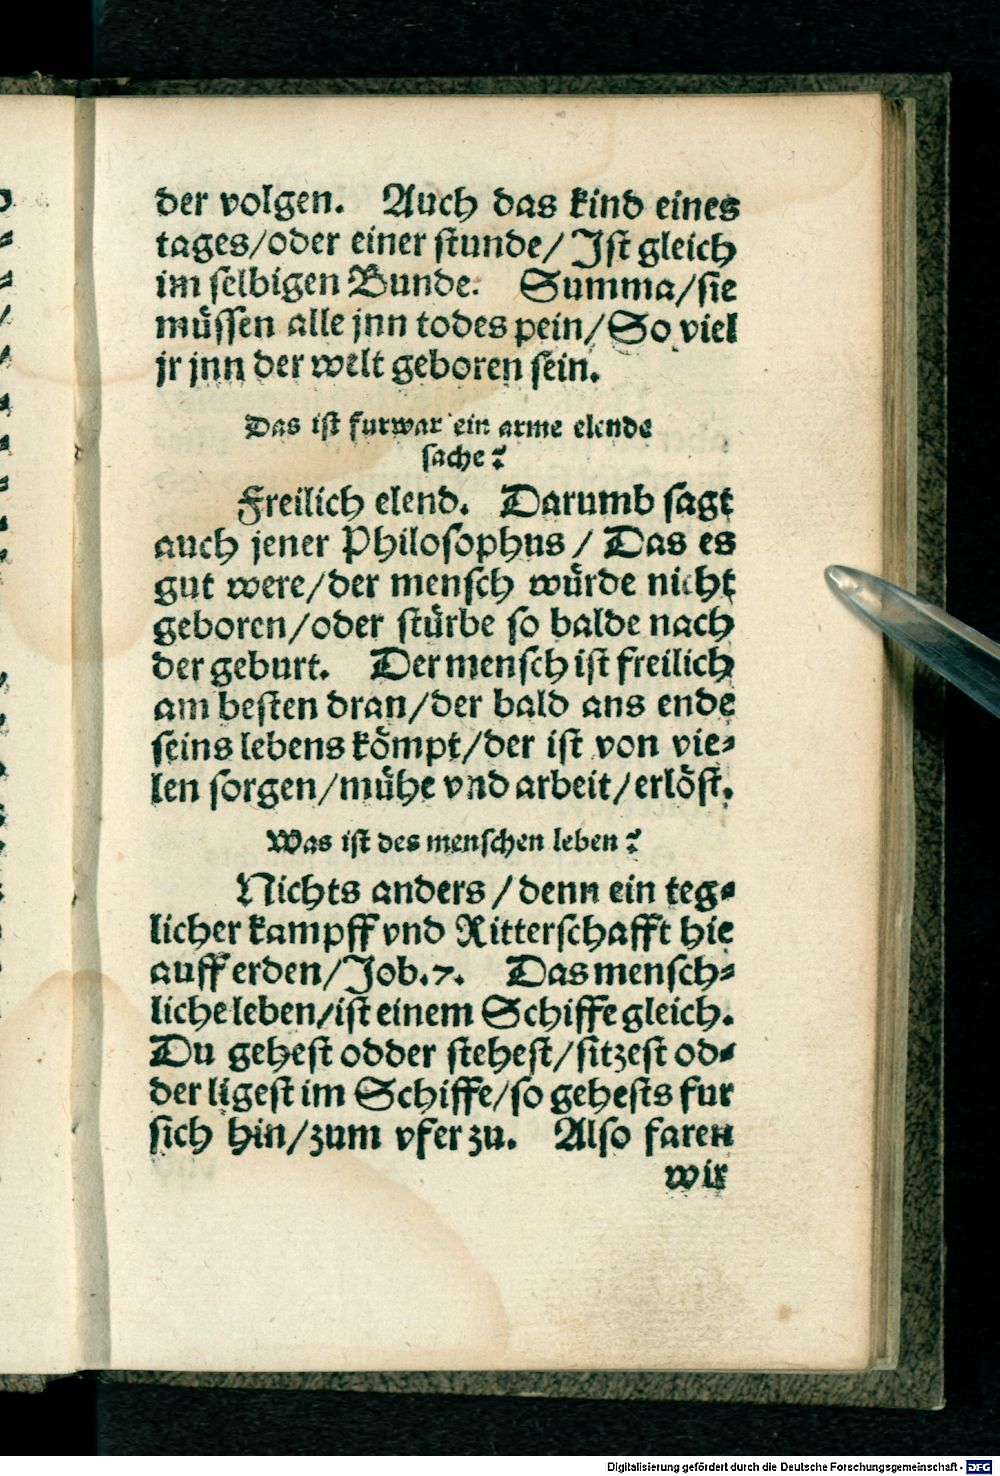 der volgen. Auch das kind eines
tages/oder einer stunde/Jst gleich
im selbigen Bunde. Summa/sie
müssen alle jnn todes pein/So viel
jr jnn der welt geboren sein.
Das ist furwar ein arme elende
sache?
Freilich elend. Darumb sagt
auch jener Philosophus/Das es
gut were/der mensch würde nicht
geboren/oder stürbe so balde nach
der geburt. Der mensch ist freilich
am besten dran/der bald ans ende
seins lebens kömpt/der ist von vie-
len sorgen/mühe vnd arbeit/erlöst.
Was ist des menschen leben?
Nichts anders/denn ein teg-
licher kampff vnd Ritterschafft hie
auff erden/Job.7. Das mensch-
liche leben/ist einem Schiffe gleich.
Du gehest odder stehest/sitzest od-
der ligest im Schiffe/so gehests fur
sich hin/zum vfer zu. Also faren
wir
Digitalisierung gefördert durch die Deutsche Forschungsgemeinschaft - DFG